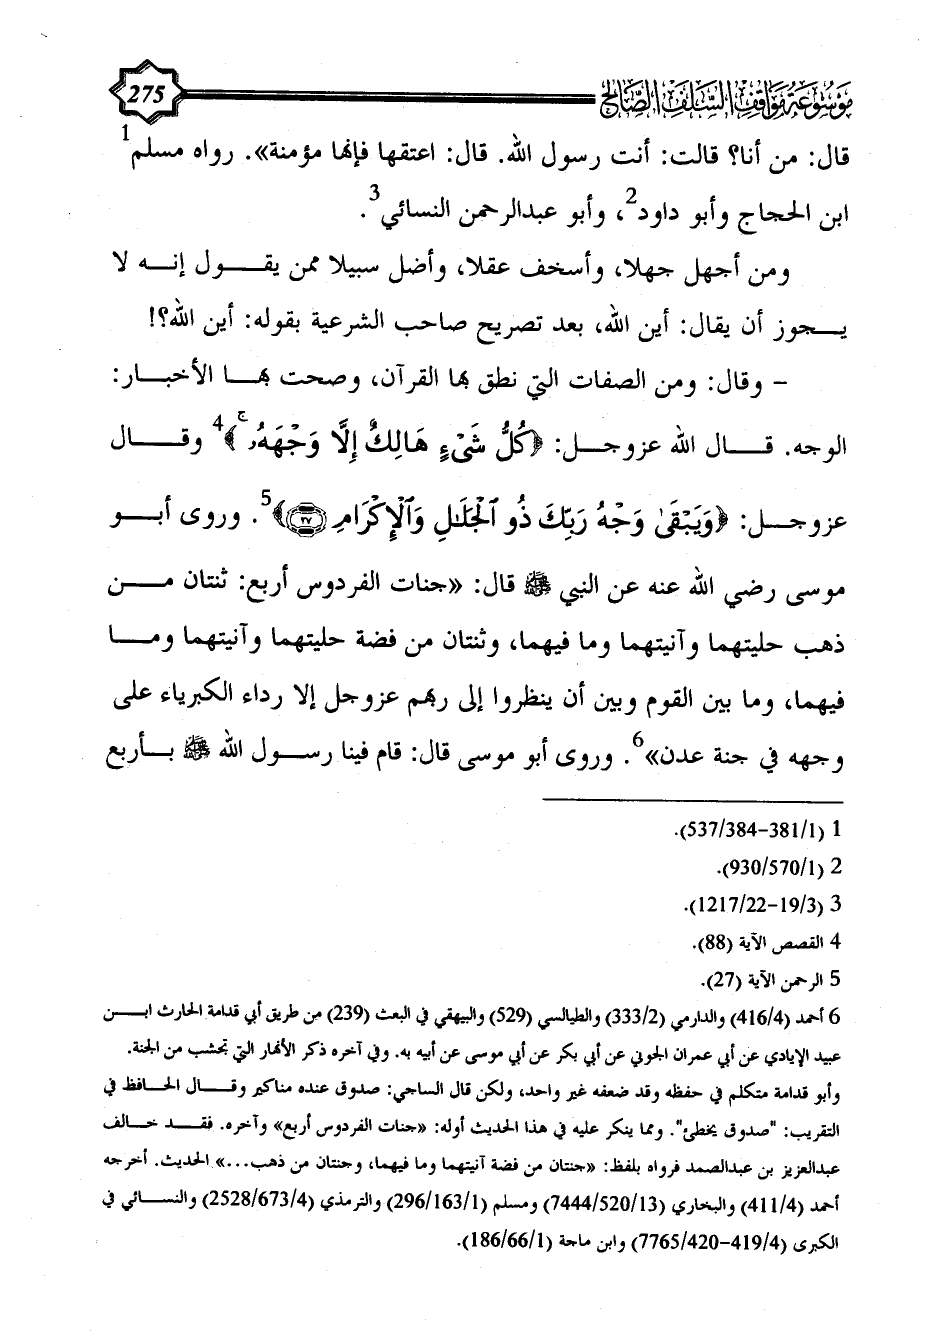 موسوعة مواقف السلف الصالح
275
قال: من أنا؟ قالت: أنت رسول الله. قال: اعتقها فإنها مؤمنة». رواه مسلم1
ابن الحجاج وأبو داود2، وأبو عبدالرحمن النسائي3.
ومن أجهل جهلا، وأسخف عقلا، وأضل سبيلا ممن يقـــول إنـه لا
يـجوز أن يقال: أين الله، بعد تصريح صاحب الشرعية بقوله: أين الله؟!
- وقال: ومن الصفات التي نطق بها القرآن، وصحت بهـا الأخبـار:
الوجه. قـال الله عزوجـل: ﴿كُلُّ شَىْءٍ هَالِكٌ إِلَّا وَجْهَهُۥ ۚ﴾4 وقـال
عزوجـل: ﴿وَيَبْقَىٰ وَجْهُ رَبِّكَ ذُو ٱلْجَلَـٰلِ وَٱلْإِكْرَامِ ٢٧﴾5. وروى أبـو
موسى رضي الله عنه عن النبي ﷺ قال: «جنات الفردوس أربع: ثنتان مـن
ذهب حليتهما وآنيتهما وما فيهما، وثنتان من فضة حليتهما وآنيتهما ومـا
فيهما، وما بين القوم وبين أن ينظروا إلى ربهم عزوجل إلا رداء الكبرياء على
وجهه في جنة عدن»6. وروى أبو موسى قال: قام فينا رسـول الله ﷺ بـأربع
1 (1/381-384/537).
2 (1/570/930).
3 (3/19-22/1217).
4 القصص الآية (88).
5 الرحمن الآية (27).
6 أحمد (416/4) والدارمي (333/2) والطيالسي (529) والبيهقي في البعث (239) من طريق أبي قدامة الحارث ابـن
عبيد الإيادي عن أبي عمران الجوني عن أبي بكر عن أبي موسى عن أبيه به. وفي آخره ذكر الأنهار التي تحشب من الجنة.
وأبو قدامة متكلم في حفظه وقد ضعفه غير واحد، ولكن قال الساجي: صدوق عنده مناكير وقـال الحـافظ في
التقريب: "صدوق يخطئ". ومما ينكر عليه في هذا الحديث أوله: «جنات الفردوس أربع» وآخره. فقـد خـالف
عبدالعزيز بن عبدالصمد فرواه بلفظ: «جنتان من فضة آنيتهما وما فيهما، وجنتان من ذهب...» الحديث. أخرجه
أحمد (411/4) والبخاري (7444/520/13) ومسلم (296/163/1) والترمذي (2528/673/4) والنسـائي في
الكبرى (7765/420-419/4) وابن ماجة (186/66/1).